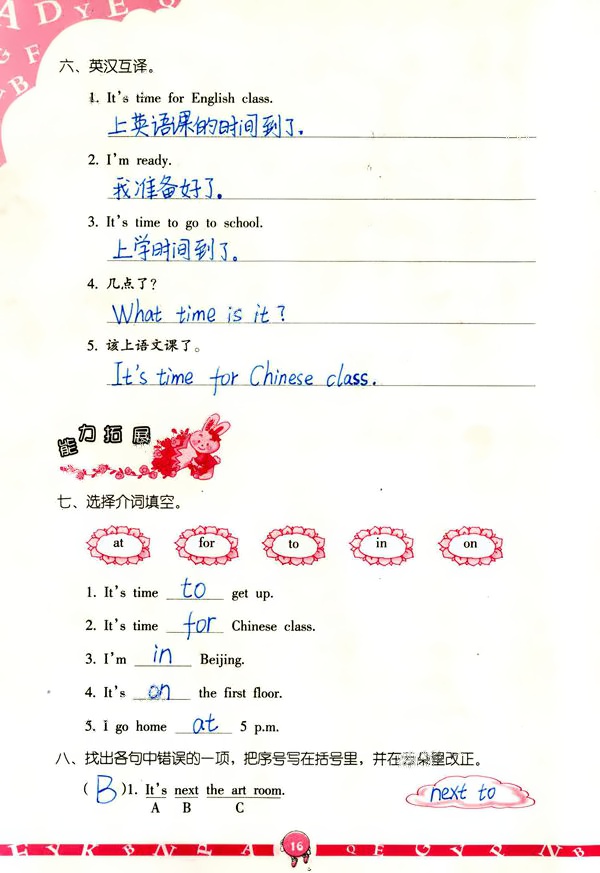 六、英汉互译。
1. It's time for English class.
上英语课的时间到了。
2. I'm ready.
我准备好了。
3. It's time to go to school.
上学时间到了。
4. 几点了?
What time is it?
5. 该上语文课了。
It's time for Chinese class.
能力拓展
七、选择介词填空。
at for to in on
1. It's time to get up.
2. It's time for Chinese class.
3. I'm in Beijing.
4. It's on the first floor.
5. I go home at 5 p.m.
八、找出各句中错误的一项，把序号写在括号里，并在云朵里改正。
( B )1. It's next the art room. next to
A B C
16